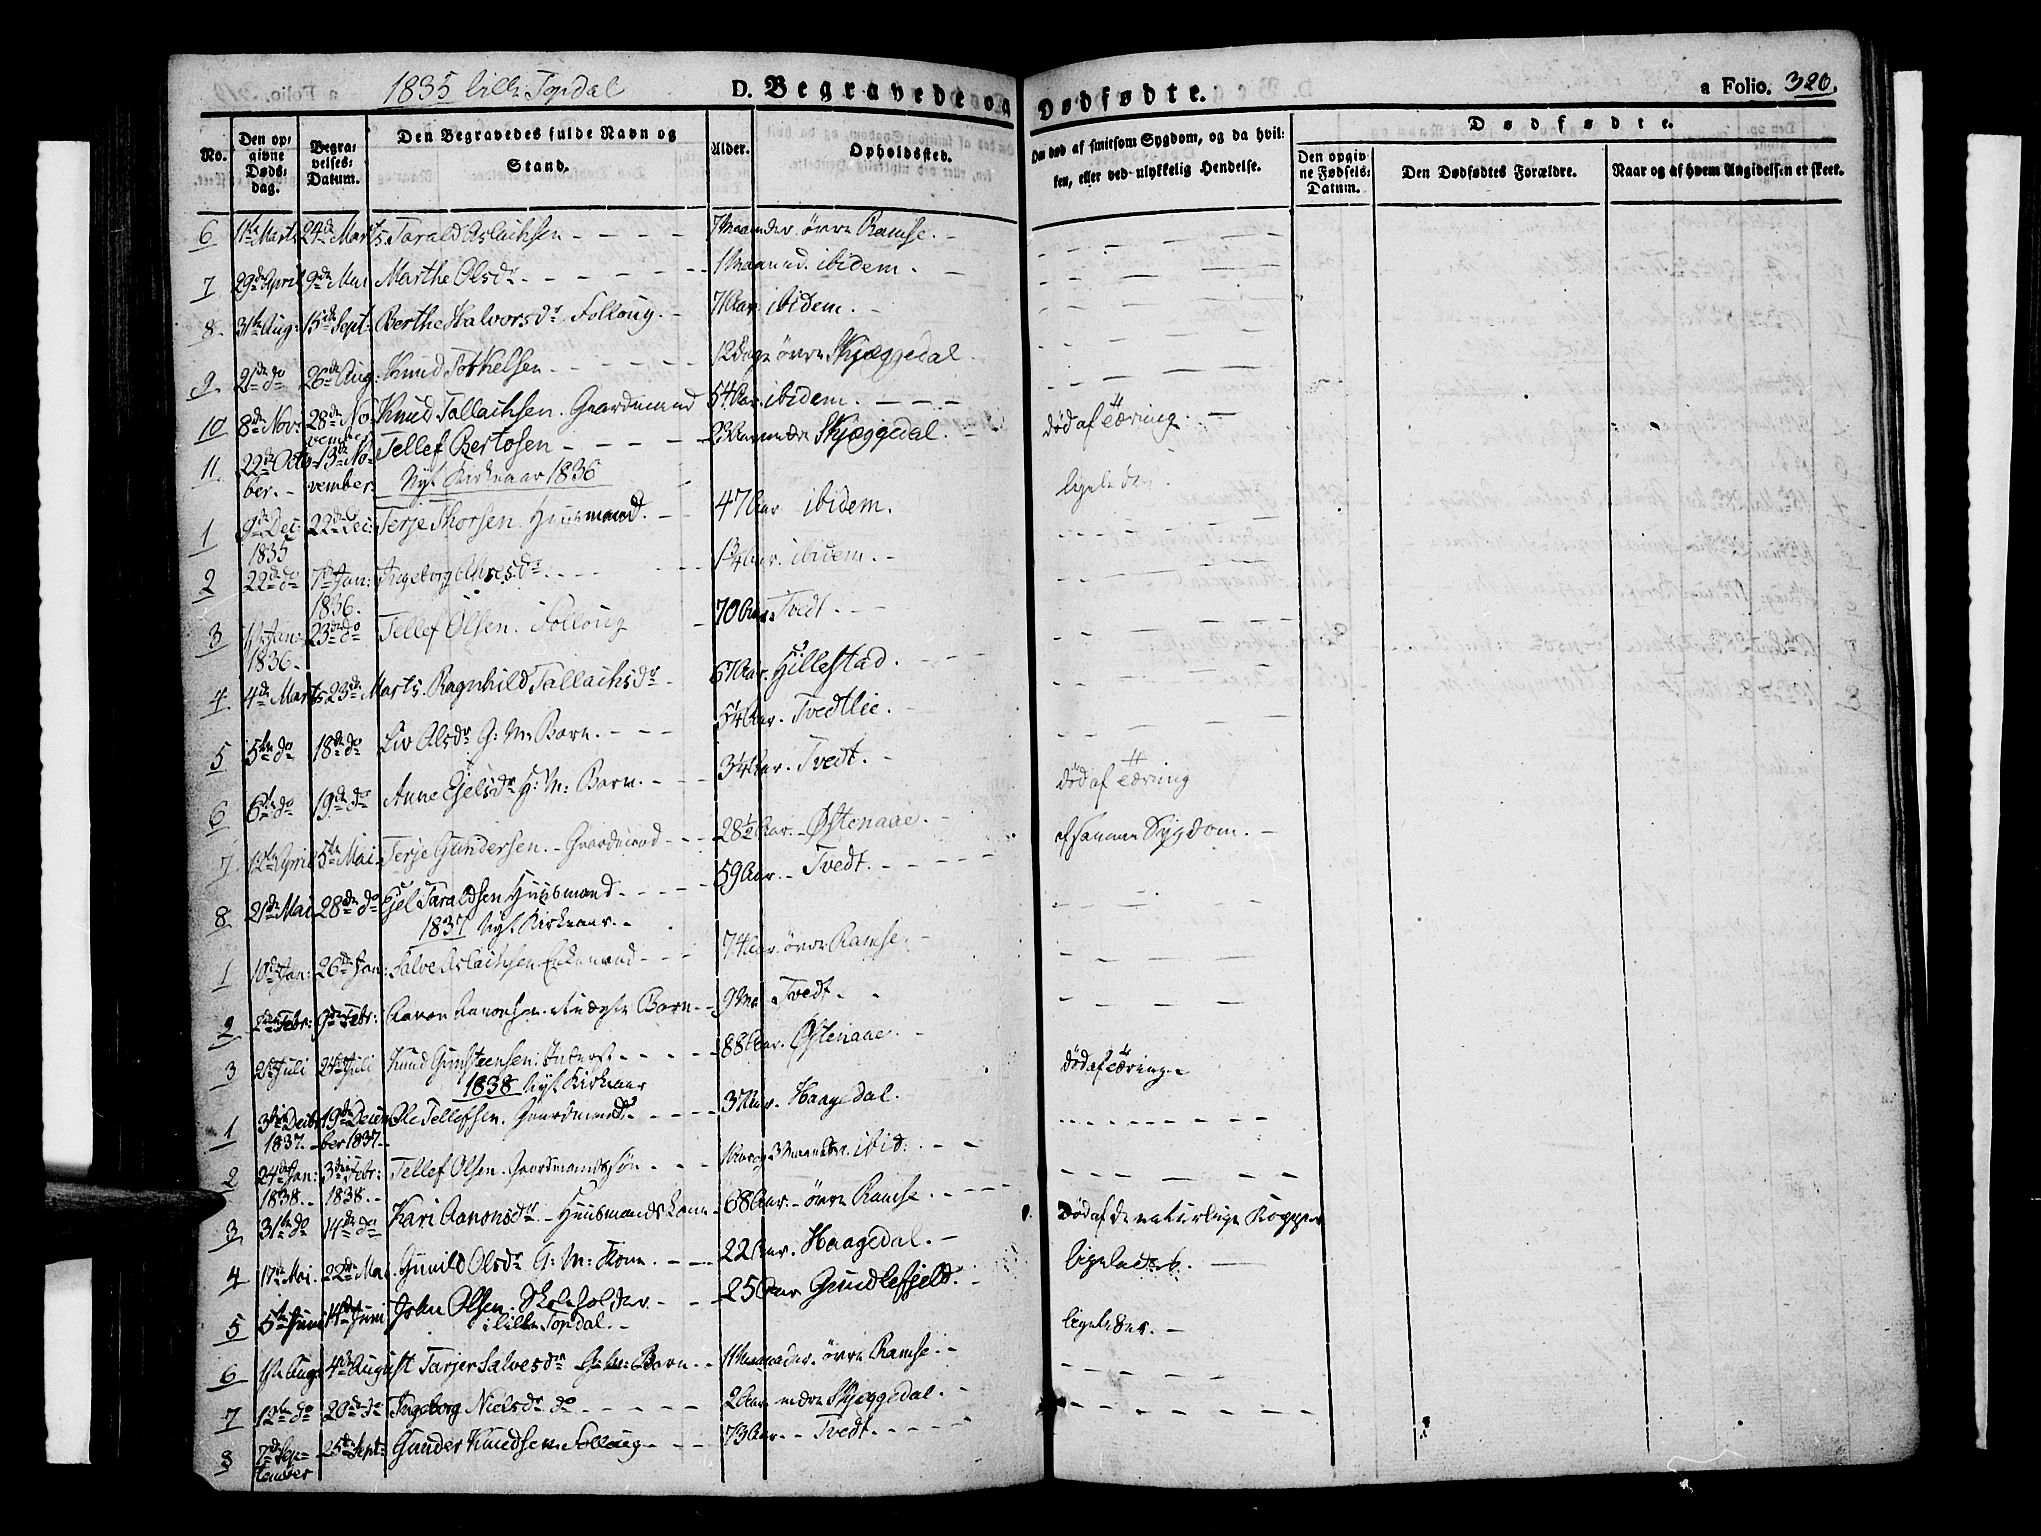 1835 lille Topdal D. Begravede og Dødfødte. a Folio. 320.
No. Den opgivne Dødsdag. Begravelses-Datum. Den Begravedes fulde Navn og Stand. Alder. Opholdssted. Om død af smitsom Sygdom, og da hvilken, eller ved ulykkelig Hendelse. Dødfødte. Den opgivne Fødsels-Datum. Den Dødfødtes Forældre. Naar og af hvem Angivelsen er skeet.
6 11te Marts 24de Marts Tarald Aslachsen 7 Maaneder øvre Ramse.
7 29de April 9de Mai Marthe Olsdr 1 Maaned. ibidem.
8. 31te Aug: 15de Sept: Berthe Halvorsdr. Folloug. 71 Aar. ibidem.
9 21de do 26de Aug: Knud Torkelsen 12 Dage øvre Skjeggedal
10 8de Nov: 28de November Knud Tallachsen. Gaardmand 54 Aar. ibidem. død af Tæring.
11. 22de October. 13de November. Tellef Bertosen 23 Aar nedre Skjeggedal. ligeledes.
Nyt Kirkeaar 1836
1 9de Dec: 1835 22de Dec: Terje Thorsen. Huusmand. 47 Aar ibidem.
2 22de do 7de Jan: 1836. Ingeborg Ahresdr. 1 3/4 Aar. ibidem.
3 11te Jan: 1836. 23de do Tellef Olsen. Folloug 70 Aar. Tvedt.
4. 4de Marts 23de Marts. Ragnhild Tallachsdr 67 Aar. Hillestad.
5 5te do 18de do Liv Olsdr G: M: Barn. 5 1/4 Aar. Tvedtlie.
6 6te do 19de do Anne Ejelsdr H: M: Barn. 3 1/4 Aar. Tvedt. død af Tæring
7 12te April 5te Mai Terje Gundersen. Gaardmand 28 1/2 Aar. Østenaae. af samme Sygdom.
8 21de Mai 28de do Ejel Taraldsen Huusmand. 59 Aar. Tvedt.
1837 Nyt Kirkeaar.
1 10de Jan: 26de Jan: Salve Aslachsen Enkemand 74 Aar. øvre Ramse.
2 Febr: 9de Febr: Aanon Aanonsen. uægte Barn. 9 Ma. Tvedt.
3 2de Juli 24de Juli Knud Gunsteensen: Inderst. 88 Aar. Østenaae. død af Tæring.
1838 Nyt Kirkeaar
1 3die Decbr 1837. 19de December 1837. Ole Tellefsen. Gaardmand. 37 Aar. Haagedal.
2 24de Jan: 1838. 3die Febr: 1838. Tellef Olsen. Gaardmandssøn 1 Aar og 3 Maaneder. ibid.
3 31te do 14de do Kari Aanonsdr. Huusmandskone 68 Aar. øvre Ramse. Død af de naturlige Kopper
4 17de Mai. 22de Mai. Gunild Olsdr G: M: Kone. 22 Aar. Haagedal. ligeledes.
5 5te Juni 14de Juni John Olsen. Skoleholder 25 Aar Gundlefjeld. ligeledes.
i lille Topdal.
6 1ste Aug: 4de August Tarjer Salvesdr G: M: Barn. 11 Maaneder. øvre Ramse.
7 12te do 20de do Ingeborg Nielsdr do 2 Aar nedre Skjeggedal.
8 7de September 25de Sept: Gunder Knudsen Follaug 73 Aar. Tvedt.